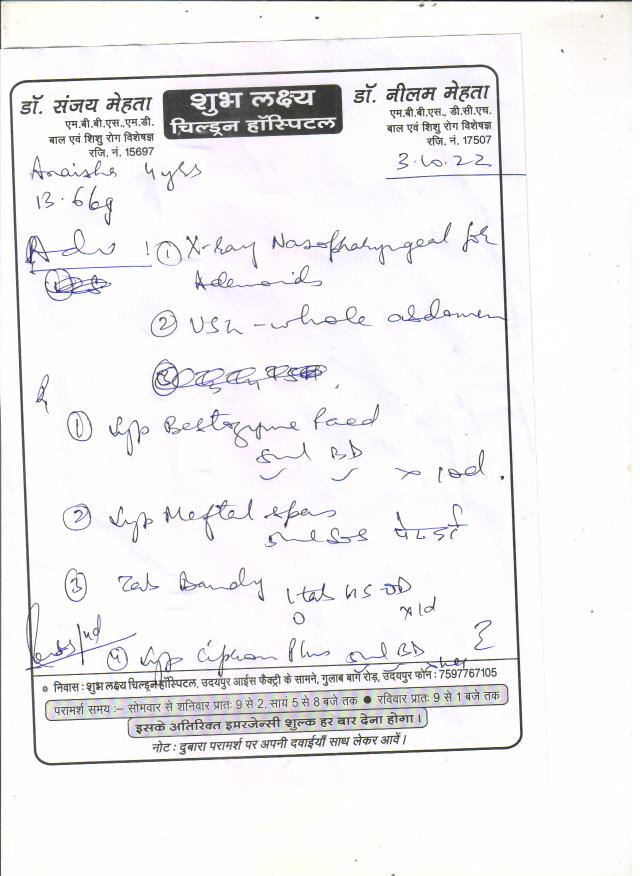 डॉ. संजय मेहता
एम.बी.बी.एस.,एम.डी.
बाल एवं शिशु रोग विशेषज्ञ
रजि. नं. 15697
शुभ लक्ष्य
चिल्ड्रन हॉस्पिटल
डॉ. नीलम मेहता
एम.बी.बी.एस., डी.सी.एच.
बाल एवं शिशु रोग विशेषज्ञ
रजि. नं. 17507
3.10.22
Anaisha 4 yrs
13.66g
Adv : ① X-Ray Nasopharyngeal for
Adenoids
② USG - whole abdomen
③
① Syp Bestozyme Paed
5ml BD
x 10d.
② Syp Meftal spas
5ml SOS पेटदर्द
③ Tab Bandy
1 tab HS OD
x 1d
④ Syp Plus 5ml BD
* निवास : शुभ लक्ष्य चिल्ड्रन हॉस्पिटल, उदयपुर आईस फैक्ट्री के सामने, गुलाब बाग रोड़, उदयपुर फोन : 7597767105
परामर्श समय :– सोमवार से शनिवार प्रातः 9 से 2, सायं 5 से 8 बजे तक ● रविवार प्रातः 9 से 1 बजे तक
इसके अतिरिक्त इमरजेन्सी शुल्क हर बार देना होगा।
नोट : दुबारा परामर्श पर अपनी दवाईयाँ साथ लेकर आवें।